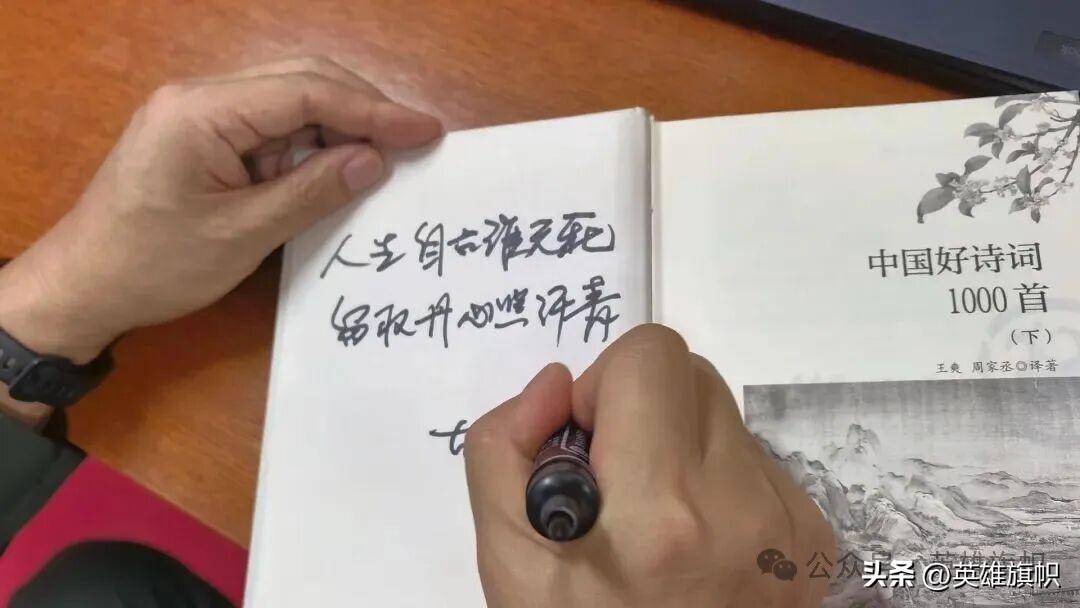 人生自古谁无死
留取丹心照汗青
中国好诗词
1000首
（下）
王爽 周家丞◎译著
公众号 英雄旗帜
头条 @英雄旗帜